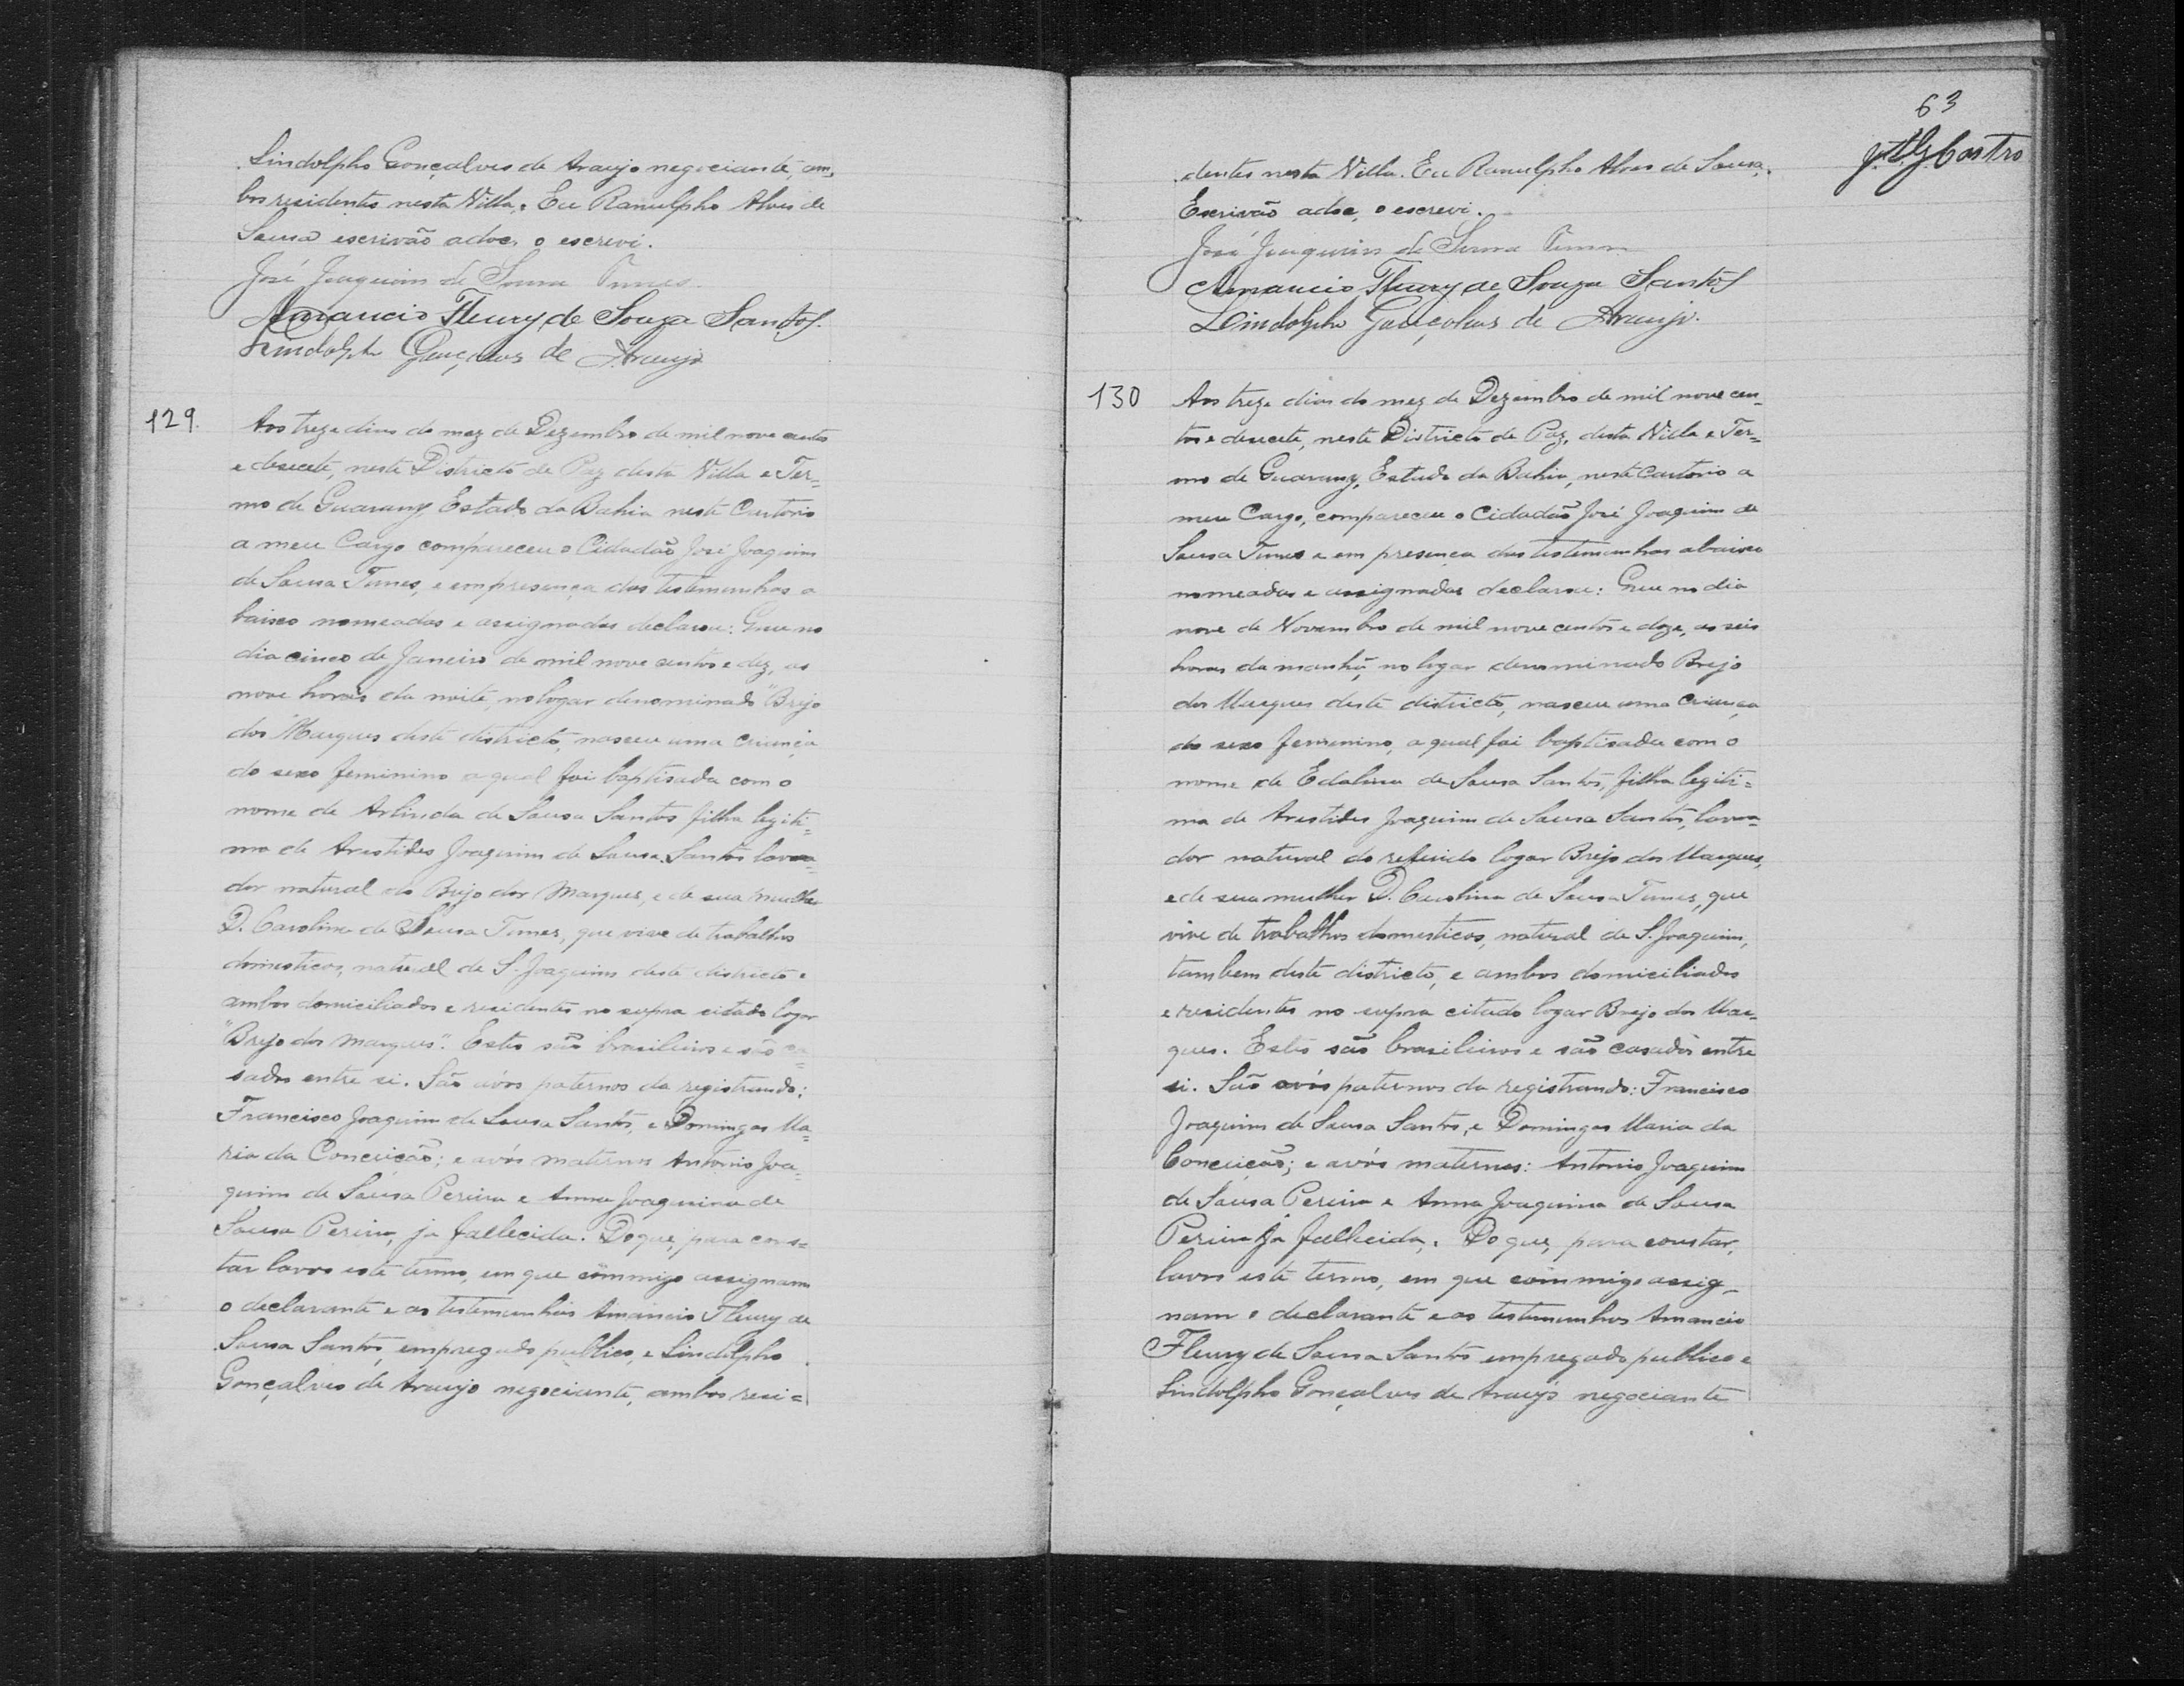 Lindolpho Gonçalves de Araujo negociante, am-
bos residentes nesta Villa. Eu Ranulpho Alves de
Sousa escrivão adoc, o escrevi.
José Joaquim de Sousa Tunes
Amancio Fleury de Souza Santos.
Lindolpho Gonçalves de Araujo
129.
Aos treze dias do mez de Dezembro de mil nove centos
e desecete, neste Districto de Paz desta Villa e Ter=
mo de Guarany, Estado da Bahia neste Cartorio
a meu Cargo compareceu o Cidadão José Joaquim
de Sousa Tunes, e em presença das testemunhas a
baixo nomeadas e assignadas declarou: Que no
dia cinco de Janeiro de mil nove centos e dez, as
nove horas da noite, no logar denominado "Brejo
dos Marques deste districto, nasceu uma criança
do sexo feminino a qual foi baptisada com o
nome de Arlinda de Sousa Santos filha legiti=
ma de Arestides Joaquim de Sousa Santos lavra=
dor natural do Brejo dos Marques, e de sua mulher
D. Carolina de Sousa Tunes, que vive de trabalhos
domesticos, natural de S. Joaquim deste districto e
ambos domiciliados e residentes no supra citado logar
"Brejo dos Marques". Estes são brasileiros e são ca=
sados entre si. São avós paternos da registrando:
Francisco Joaquim de Sousa Santos, e Domingas Ma=
ria da Conceição; e avós maternos Antonio Joa=
quim de Sousa Pereira e Anna Joaquina de
Sousa Pereira, ja fallecida. Do que, para cons=
tar lavro este termo, em que commigo assignam
o declarante e as testemunhas Amancio Fleury de
Sousa Santos, empregado publico, e Lindolpho
Gonçalves de Araujo negociante, ambos resi=
63
Castro
dentes nesta Villa. Eu Ranulpho Alves de Sousa,
Escrivão adoc, o escrevi.
José Joaquim de Sousa Tunes
Amancio Fleury de Souza Santos
Lindolpho Gonçalves de Araujo.
130
Aos treze dias do mez de Dezembro de mil nove cen-
tos e desecete, neste Districto de Paz, desta Villa e Ter=
mo de Guarany, Estado da Bahia, neste Cartorio a
meu Cargo, compareceu o Cidadão José Joaquim de
Sousa Tunes e em presença das testemunhas abaixo
nomeadas e assignadas declarou: Que no dia
nove de Novembro de mil nove centos e doze, as seis
horas da manhã, no logar denominado Brejo
dos Marques deste districto, nasceu uma criança
do sexo femenino, a qual foi baptisada com o
nome de Edalina de Sousa Santos, filha legiti=
ma de Arestides Joaquim de Sousa Santos, lavra=
dor natural do referido logar Brejo dos Marques,
e de sua mulher D. Carolina de Sousa Tunes, que
vive de trabalhos domesticos, natural de S. Joaquim,
tambem deste districto, e ambos domiciliados
e residentes no supra citado logar Brejo dos Mar=
ques. Estes são brasileiros e são casados entre
si. São avós paternos da registrando: Francisco
Joaquim de Sousa Santos, e Domingas Maria da
Conceição; e avós maternos: Antonio Joaquim
de Sousa Pereira e Anna Joaquina de Sousa
Pereira ja fallecida. Do que, para constar,
lavro este termo, em que commigo assig-
nam o declarante e as testemunhas Amancio
Fleury de Sousa Santos empregado publico e
Lindolpho Gonçalves de Araujo negociante